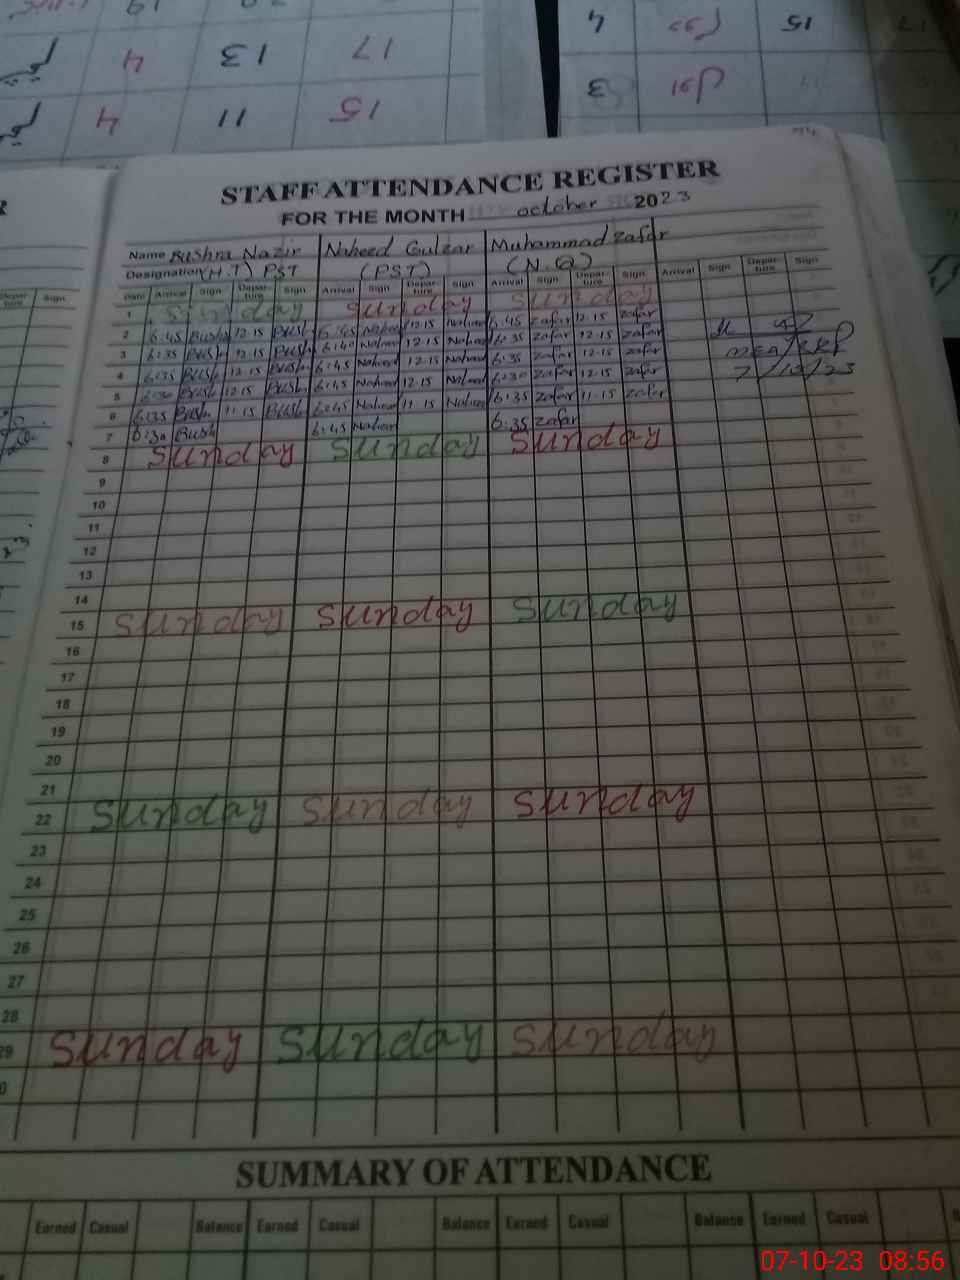 17 13 4
15 11 4
15 4
3
STAFF ATTENDANCE REGISTER
FOR THE MONTH october 2023
Name Bushra Nazir Naheed Gulzar Muhammad Zafar
Designation (H.T) PST (PST) (N.Q)
Date Arrival Sign Depar-ture Sign Arrival Sign Depar-ture Sign Arrival Sign Depar-ture Sign Arrival Sign Depar-ture Sign
1 Sunday Sunday Sunday
2 6:45 Bush 12:15 Bush 6:45 Naheed 12:15 Naheed 6:45 Zafar 12:15 Zafar
3 6:35 Bush 12:15 Bush 6:40 Naheed 12:15 Naheed 6:35 Zafar 12:15 Zafar
4 6:35 Bush 12:15 Bush 6:45 Naheed 12:15 Naheed 6:35 Zafar 12:15 Zafar
5 6:30 Bush 12:15 Bush 6:45 Naheed 12:15 Naheed 6:30 Zafar 12:15 Zafar
6 6:35 Bush 11:15 Bush 6:45 Naheed 11:15 Naheed 6:35 Zafar 11:15 Zafar
7 6:30 Bush 6:45 Naheed 6:35 Zafar
MEA/RYP
7/10/23
8 Sunday Sunday Sunday
9
10
11
12
13
14
15 Sunday Sunday Sunday
16
17
18
19
20
21
22 Sunday Sunday Sunday
23
24
25
26
27
28
29 Sunday Sunday Sunday
SUMMARY OF ATTENDANCE
Earned Casual Balance Earned Casual Balance Earned Casual Balance Earned Casual
07-10-23 08:56